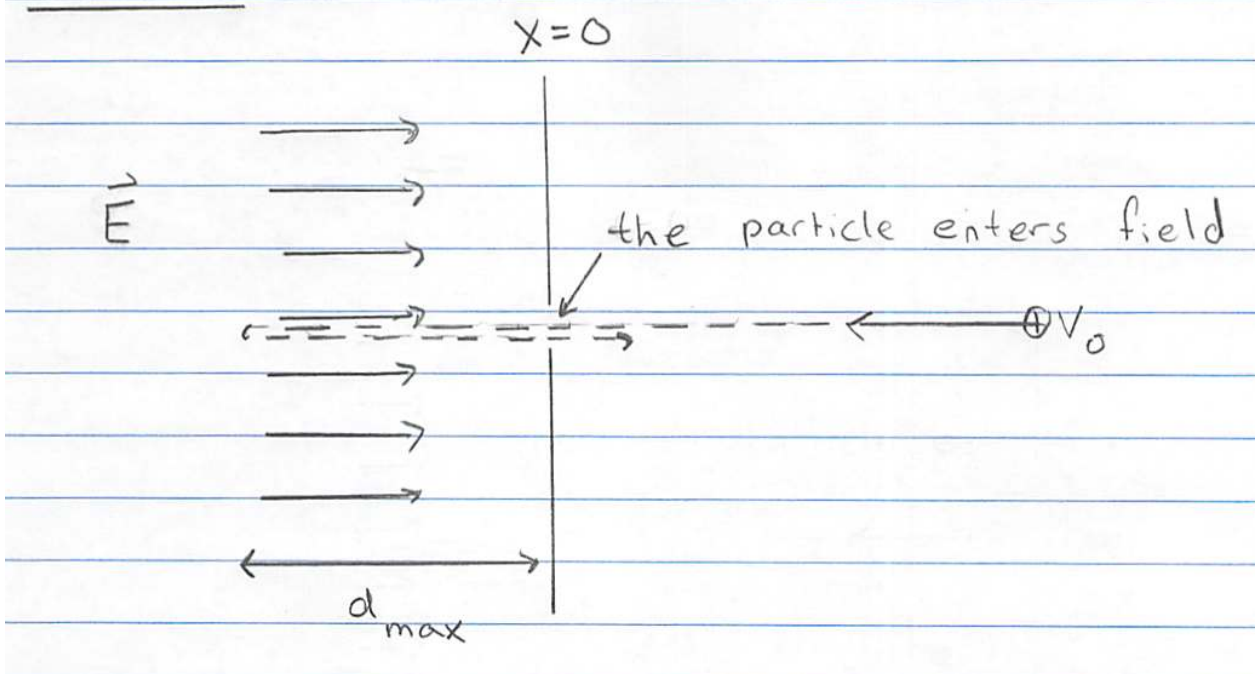 X = 0
E
the particle enters field
+ V₀
d max